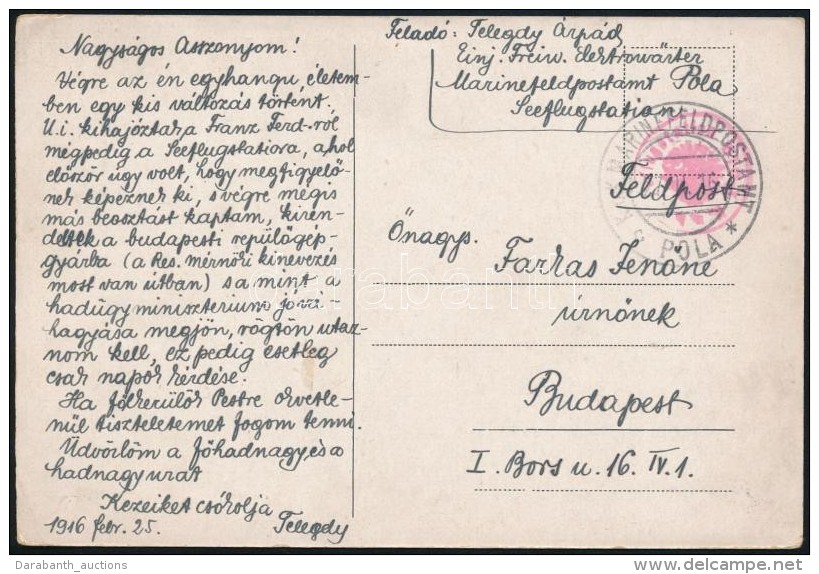 Nagyságos Asszonyom!
Végre az én egyhangu életem-
ben egy kis változás történt.
U.i. kihajóztak a Franz Ferd-ról
mégpedig a Seeflugstatiora, a hol
először úgy volt, hogy megfigyelő-
nek képeznek ki, s végre mégis
más beosztást kaptam, kiren-
deltek a budapesti repülőgép-
gyárba (a Res. mérnöki kinevezés
most van útban) s a mint a
hadügyminisztérium jóvá-
hagyása megjön, rögtön utaz-
nom kell, ez pedig esetleg
csak napok kérdése.
Ha fölkerülök Pestre okvetle-
nül tiszteletemet fogom tenni.
Üdvözlöm a főhadnagy és a
hadnagy urat
Kezeiket csókolja
1916 febr. 25. Telegdy
Feladó: Telegdy Árpád
Einj. Freiw. Elektrowärter
Marinefeldpostamt Pola
Seeflugstation
K.u.K. MARINEFELDPOSTAMT
POLA *
Feldpost
Őnagys.
Farkas Jenőné
úrnőnek
Budapest
I. Bors u. 16. IV. 1.
darabanth
Darabanth_auctions
delcampe.net